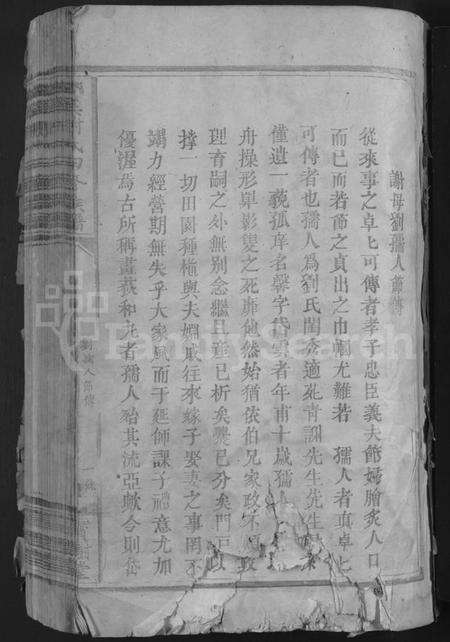 謝母劉孺人節傳
從來事之卓卓可傳者孝子忠臣義夫節婦膾炙人口
而已而若節之貞出之巾幗尤難若 孺人者眞卓卓
可傳者也孺人爲劉氏閨秀適 先生先生
僅遺一 孤庠名 字岱雲者年甫十歲孺人
舟操形單影隻之死靡他然始猶依伯兄家政不
理育嗣之外無別念繼且產已析矣爨已分矣門戶以
撑一切田園種植與夫姻戚往來嫁子娶妻之事罔不
竭力經營期無失乎大家風而于延師課子禮意尤加
優渥焉古所稱畫荻和丸者孺人殆其流亞歟今則岱
劉孺人節傳
FamilySearch